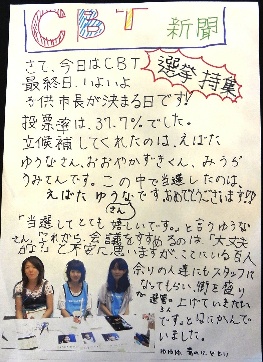 CBT 新聞
選挙特集
さて、今日はCBT
最終日。いよいよ
子供市長が決まる日です!
投票率は、37.7%でした。
立候補してくれたのは、えばた
ゆうなさん、おおやかずきくん、みうら
うみさんです。この中で当選したのは、
えばた ゆうなさんです。おめでとうございます!!
「当選してとても嬉しいです。」と言うゆうな
さん。これから、会議をすすめるのは「大丈夫
かな」と不安に思いますが、ここにいる百人
余りの人達にもスタッフに
なってもらい、街を盛り
上げていきたい
です。とはにかんで
いました。